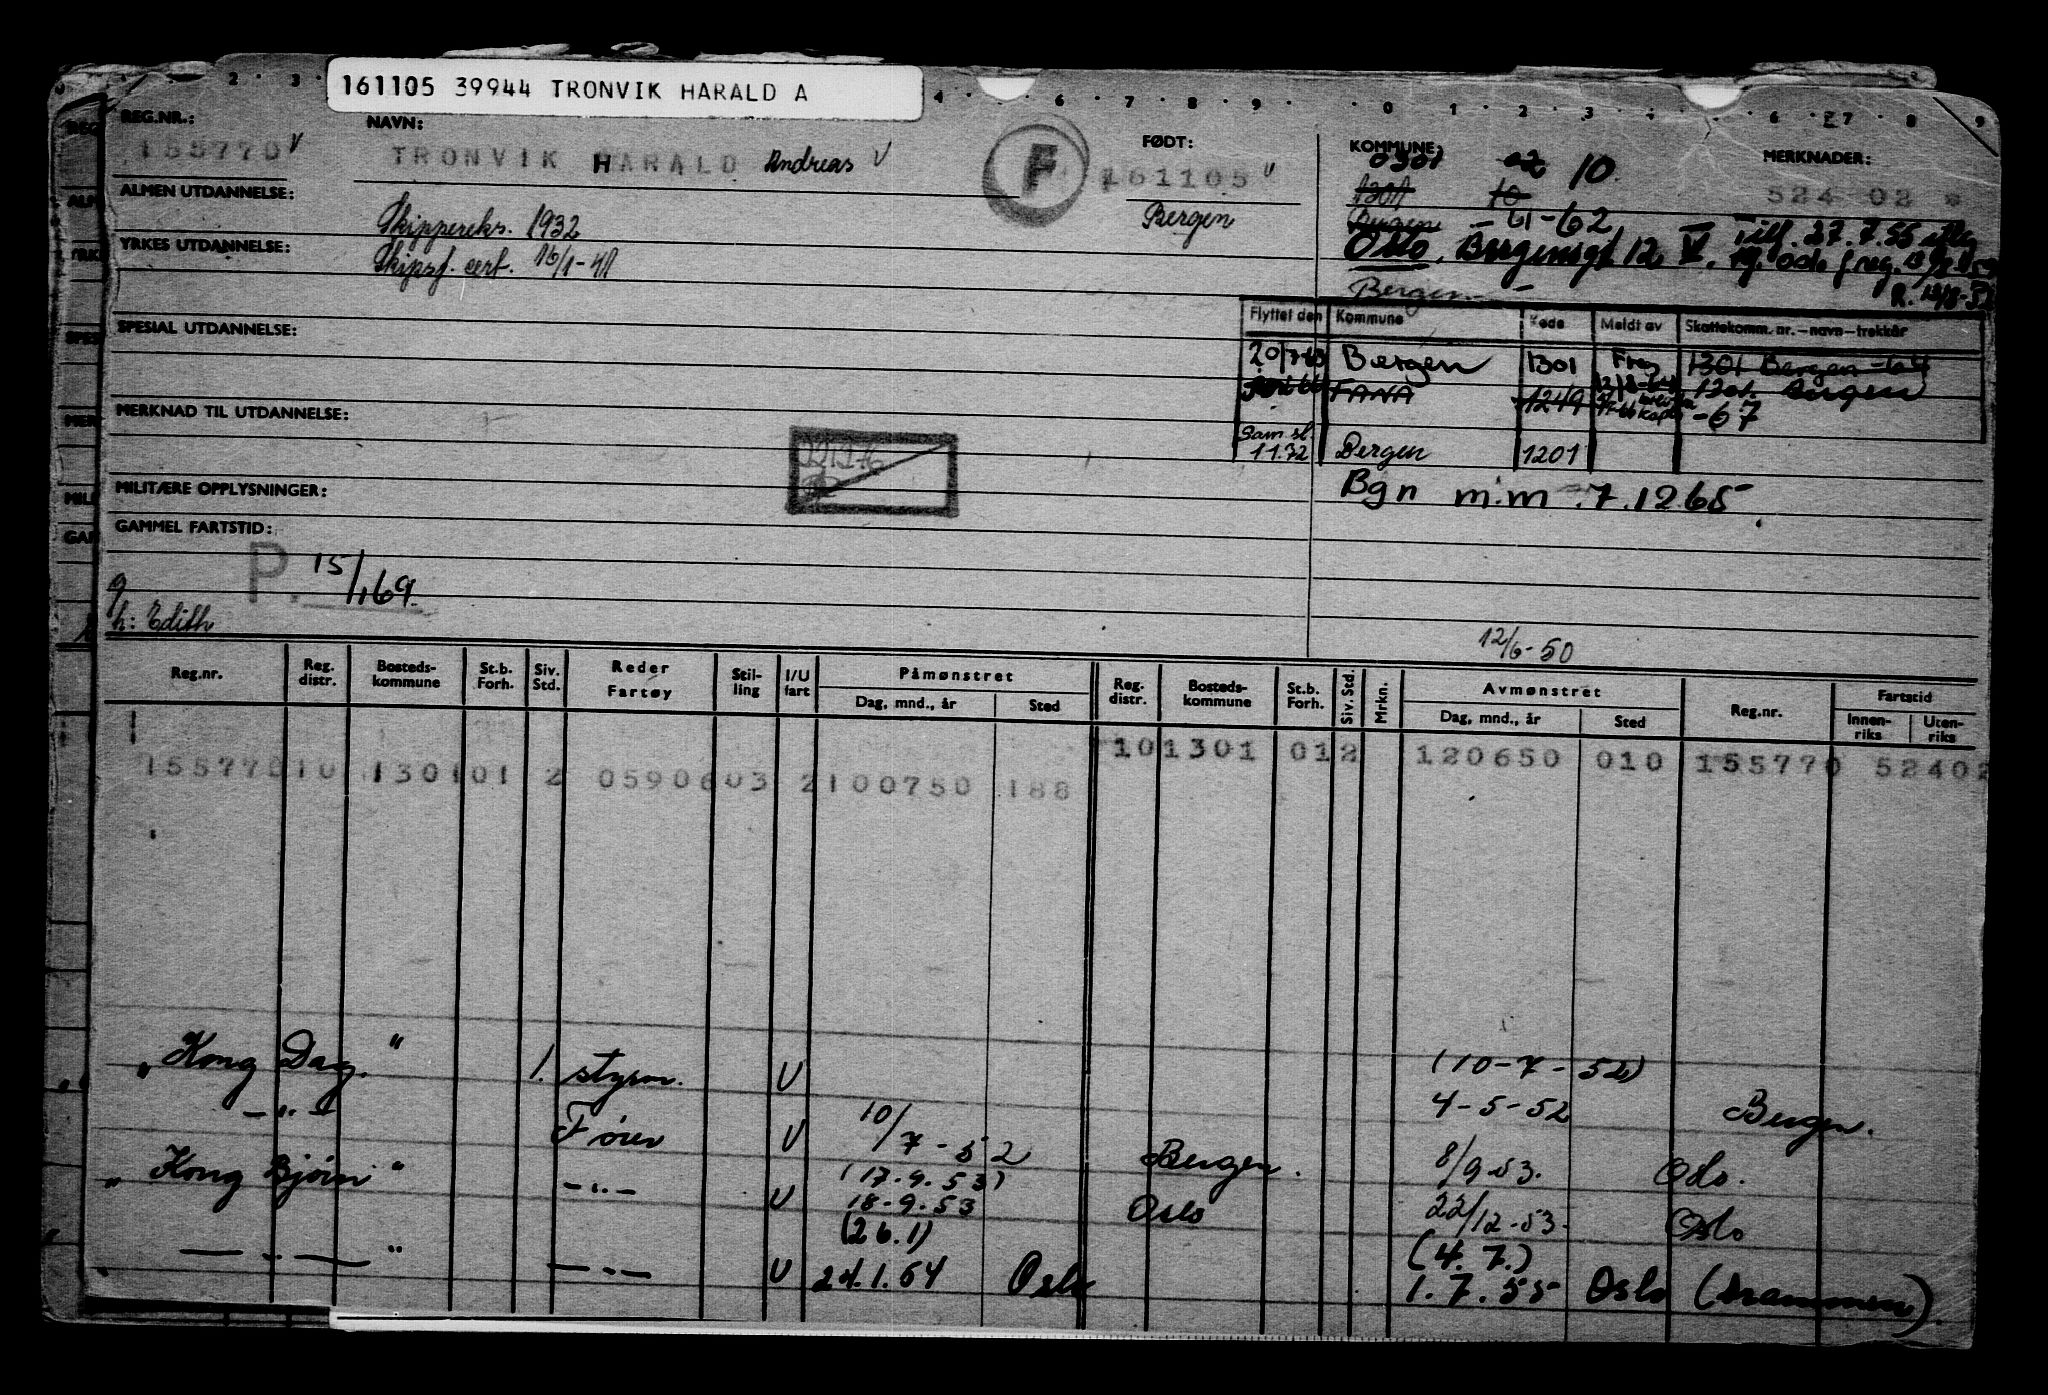 161105 39944 TRONVIK HARALD A
REG.NR.: NAVN: FØDT: KOMMUNE: MERKNADER:
155770 V TRONVIK HARALD Andreas V F 161105 V 0301 02 10
1301 10 524 02 *
ALMEN UTDANNELSE: Skippereks. 1932 Bergen Bergen -61-62
YRKES UTDANNELSE: Skipsf. cert. 16/1-41 Oslo, Bergensgt 12
Bergen
R. 13/8-53
Flyttet den Kommune Kode Meldt av Skattekomm. nr.-navn-trekkår
SPESIAL UTDANNELSE: 20/7-63 Bergen 1301 Freg 1301 Bergen -64
FANA 1249 1301 Bergen
-67
MERKNAD TIL UTDANNELSE:
Sam.sl.
11.72 Bergen 1201
MILITÆRE OPPLYSNINGER: Bgn m.m. 7.12 65
GAMMEL FARTSTID:
P. 15/1 69.
g
h: Edith
12/6-50
Reg.nr. Reg. distr. Bosteds-kommune St.b. Forh. Siv. Std. Reder Fartøy Stil-ling I/U fart Påmønstret Dag, mnd., år Sted Reg. distr. Bosteds-kommune St.b. Forh. Siv. Std. Mrkn. Avmønstret Dag, mnd., år Sted Reg.nr. Fartstid Innen-riks Uten-riks
101301 012 120650 010 155770 52402
155770 10 1301 01 2 0590603 2 100750 188
"Kong Dag." 1. styrm. U (10-7-52)
4-5-52 Bergen.
-"- Fører U 10/7-52 Bergen. 8/9-53. Oslo.
(17.9.53)
"Kong Bjørn" -"- U 18-9-53 Oslo 22/12-53. Oslo
(26.1) (4.7.)
-"-" -"- U 21.1.54 Oslo 1.7.55 Oslo (Drammen).